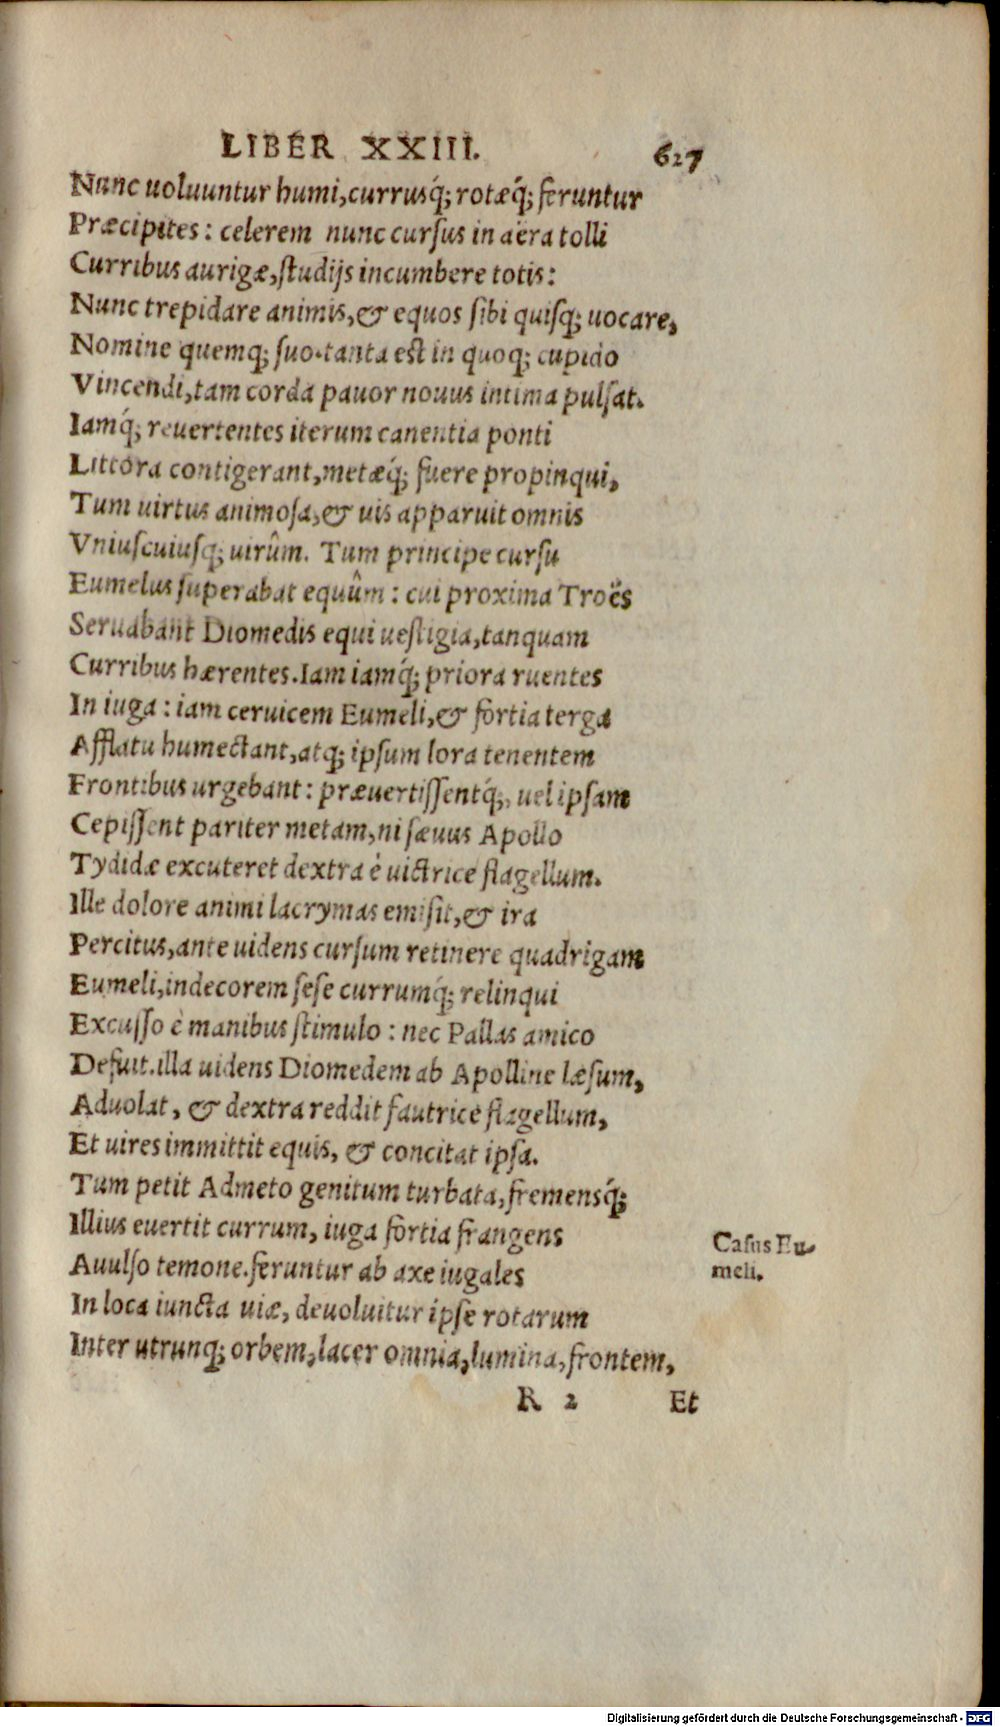 LIBER XXIII. 627
Nunc uoluuntur humi, currusq́; rotæq́; feruntur
Præcipites: celerem nunc cursus in aëra tolli
Curribus aurigæ, studijs incumbere totis:
Nunc trepidare animis, & equos sibi quisq; uocare,
Nomine quemq; suo. tanta est in quoq; cupido
Vincendi, tam corda pauor nouus intima pulsat.
Iamq́; reuertentes iterum canentia ponti
Littora contigerant, metæq́; fuere propinqui,
Tum uirtus animosa, & uis apparuit omnis
Vniuscuiusq; uirûm. Tum principe cursu
Eumelus superabat equûm: cui proxima Troës
Seruabant Diomedis equi uestigia, tanquam
Curribus hærentes. Iam iamq́; priora ruentes
In iuga: iam ceruicem Eumeli, & fortia terga
Afflatu humectant, atq; ipsum lora tenentem
Frontibus urgebant: præuertissentq́;, uel ipsam
Cepissent pariter metam, ni sæuus Apollo
Tydidæ excuteret dextra è uictrice flagellum.
Ille dolore animi lacrymas emisit, & ira
Percitus, ante uidens cursum retinere quadrigam
Eumeli, indecorem sese currumq́; relinqui
Excusso è manibus stimulo: nec Pallas amico
Defuit. illa uidens Diomedem ab Apolline læsum,
Aduolat, & dextra reddit fautrice flagellum,
Et uires immittit equis, & concitat ipsa.
Tum petit Admeto genitum turbata, fremensq́;
Illius euertit currum, iuga fortia frangens
Auulso temone. feruntur ab axe iugales
In loca iuncta uiæ, deuoluitur ipse rotarum
Inter utrunq; orbem, lacer omnia, lumina, frontem,
Casus Eu-
meli.
R 2 Et
Digitalisierung gefördert durch die Deutsche Forschungsgemeinschaft - DFG